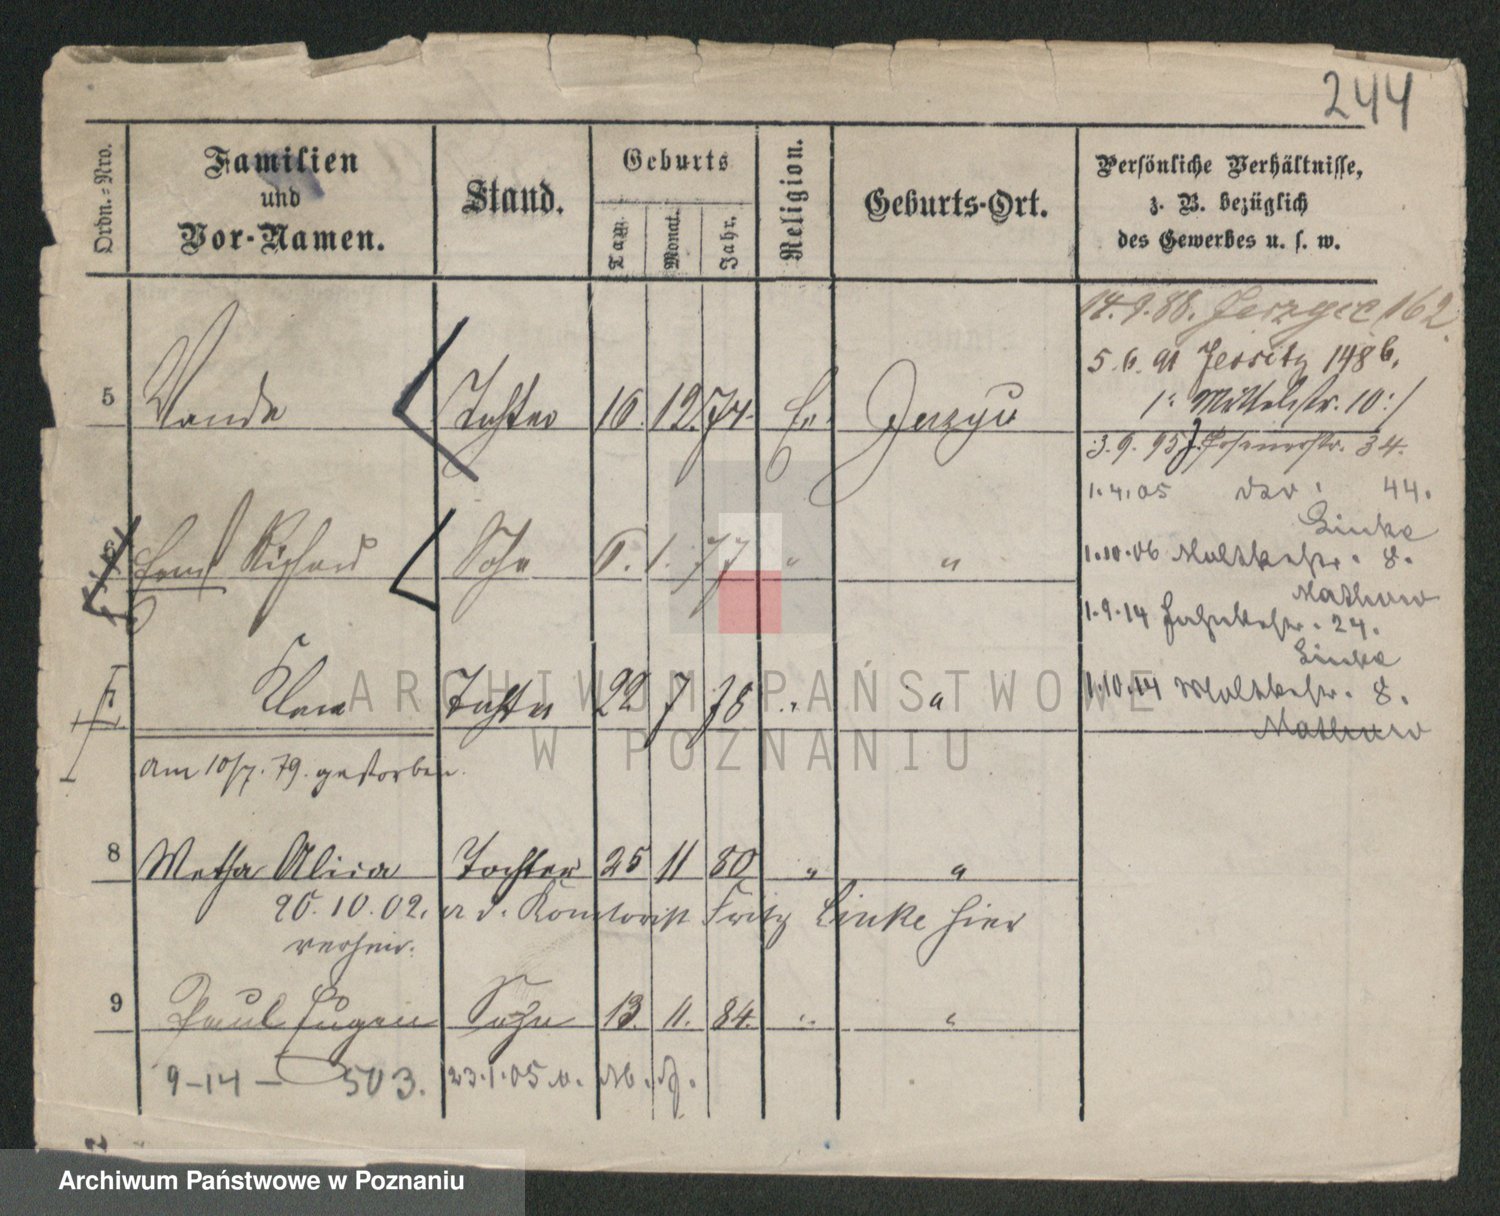 244
Ordn.-Nro.
Familien
und
Vor-Namen.
Stand.
Geburts
Tag.
Monat.
Jahr.
Religion.
Geburts-Ort.
Persönliche Verhältnisse,
z. B. bezüglich
des Gewerbes u. s. w.
14.9.88. Jerzyce 162.
5.6.91 Jersitz 148b.
Mittelstr. 10
5 Wanda Tochter 12. 74. Ev. Jerzyce
3.9.95 Posenerstr. 34.
1.4.05 44.
Linke
Richard Sohn 1. 77 " "
1.10.06 Moltkestr. 8.
1.9.14 24.
Linke
7 Clara Tochter 22 7 78 " "
1.10.14 Moltkestr. 8.
am 10/7. 79. gestorben.
8 Metha Alicia Tochter 25 11 80 " "
20.10.02. a. d. Kontorist Fritz Linke hier
verheir.
9 Paul Eugen Sohn 13. 11. 84. " "
9-14 - 503. 23.1.05
ARCHIWUM PAŃSTWOWE
W POZNANIU
Archiwum Państwowe w Poznaniu